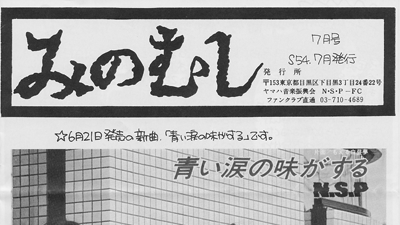 みのむし
7月号
S54.7月発行
発行所
〒153東京都目黒区下目黒3丁目24番22号
ヤマハ音楽振興会 N・S・P-FC
ファンクラブ直通 03-710-4689
☆6月21日発売の新曲、「青い涙の味がする」です。
青い涙の味がする
N.S.P